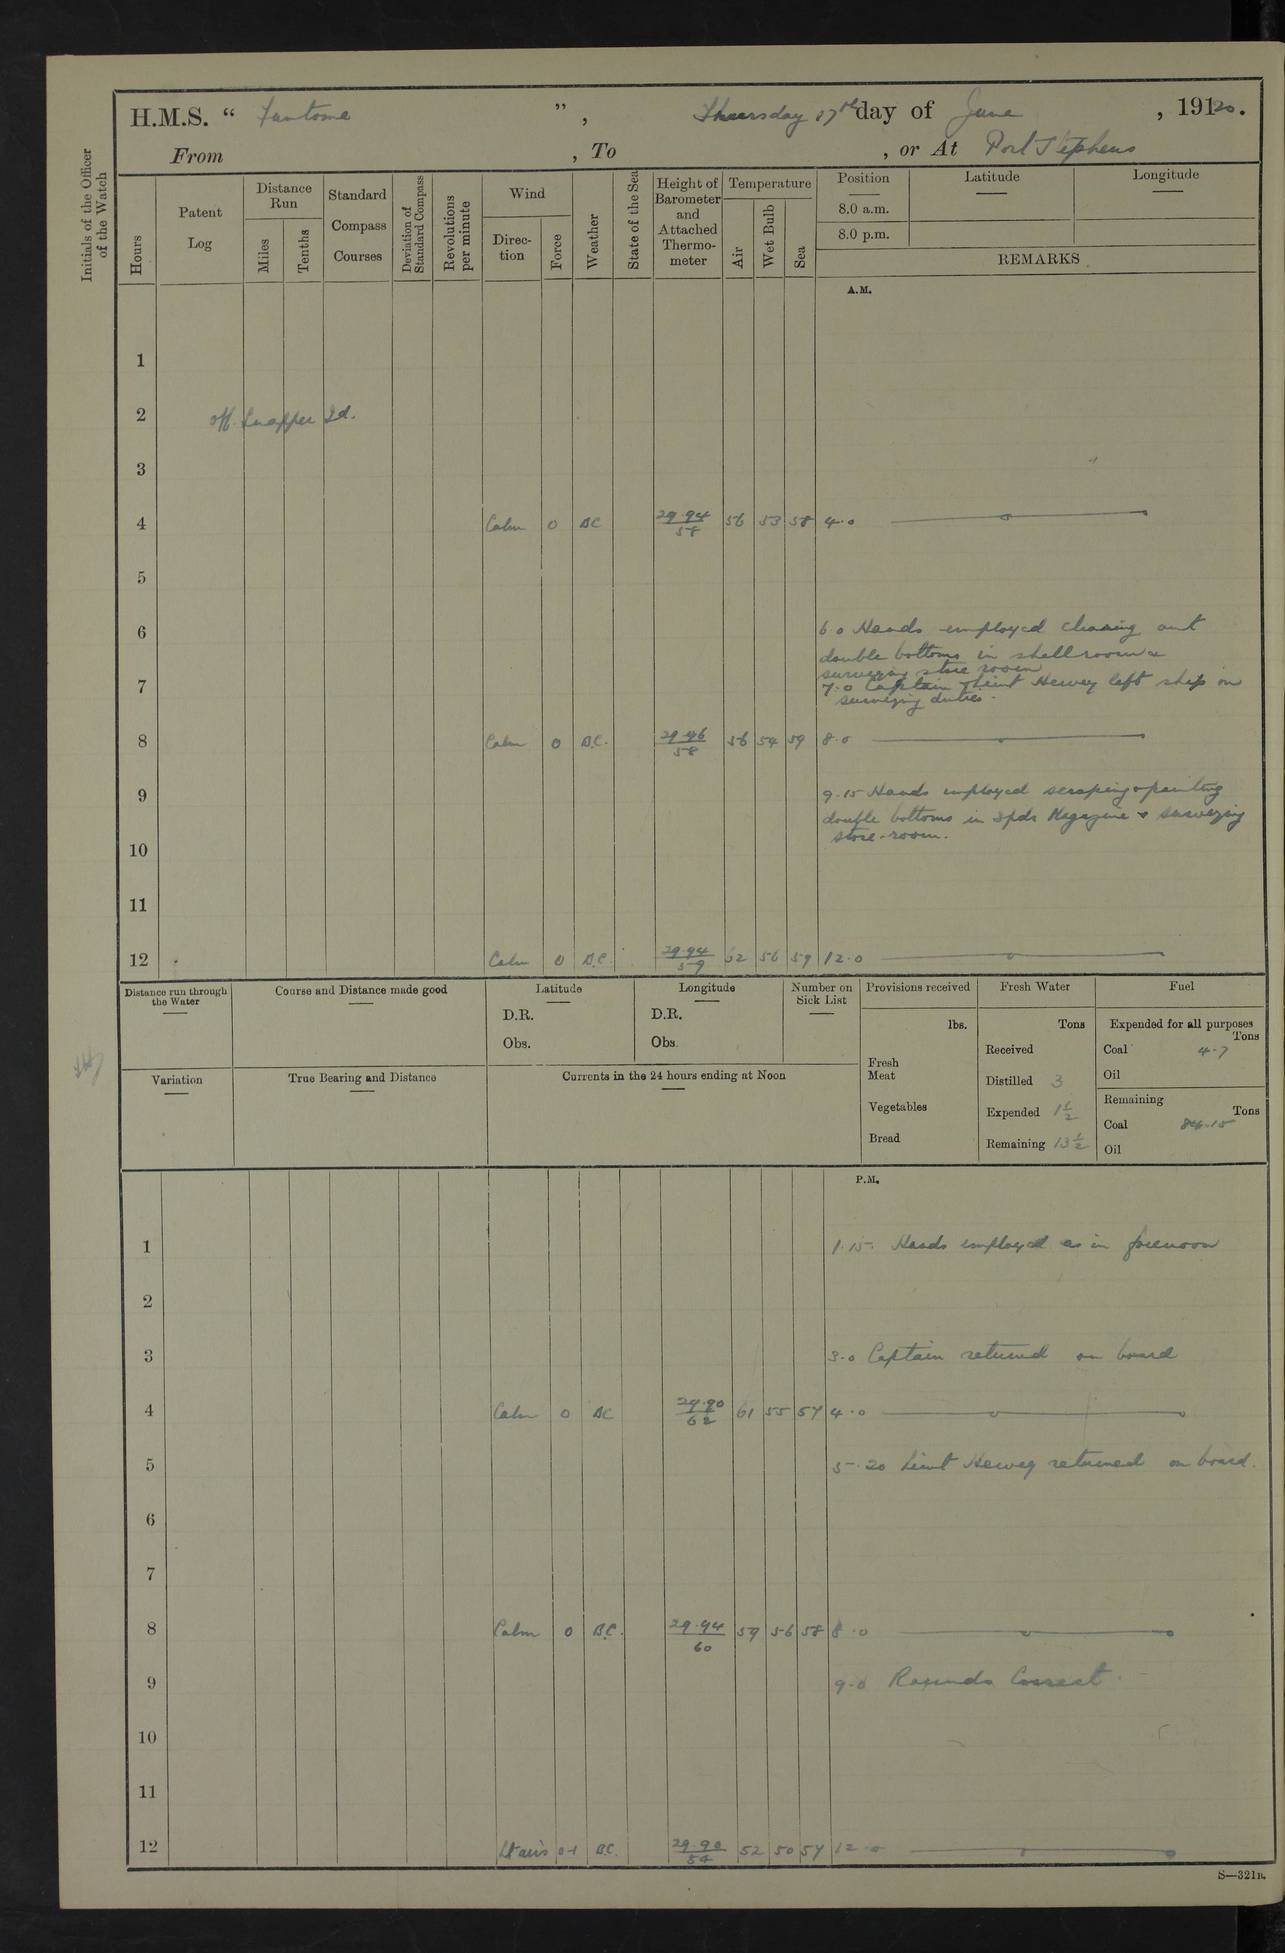 H.M.S. " Fantome ", Thursday 17th day of June, 1920.
From , To , or At Port Stephens
Initials of the Officer of the Watch
Hours
Patent Log
Distance Run
Miles
Tenths
Standard Compass Courses
Deviation of Standard Compass
Revolutions per minute
Wind
Direction
Force
Weather
State of the Sea
Height of Barometer and Attached Thermometer
Temperature
Air
Wet Bulb
Sea
Position
Latitude
Longitude
8.0 a.m.
8.0 p.m.
REMARKS
A.M.
1
2 off Snapper Id.
3
4 Calm 0 BC 29.94 58 56 53 58 4.0
5
6 6.0 Hands employed cleaning out
double bottoms in shellroom &
surveying store room
7 7.0 Captain & Lieut Hewey left ship on
surveying duties.
8 Calm 0 B.C. 29.96 58 56 54 59 8.0
9 9.15 Hands employed scraping & painting
double bottoms in 3pdr Magazine & surveying
store-room.
10
11
12 Calm 0 B.C. 29.94 59 62 56 59 12.0
Distance run through the Water
Course and Distance made good
Latitude
D.R.
Obs.
Longitude
D.R.
Obs.
Number on Sick List
Provisions received
lbs.
Fresh Meat
Vegetables
Bread
Fresh Water
Tons
Received
Distilled 3
Expended 1½
Remaining 13½
Fuel
Expended for all purposes
Tons
Coal 4.7
Oil
Remaining
Tons
Coal 84.15
Oil
Variation
True Bearing and Distance
Currents in the 24 hours ending at Noon
P.M.
1 1.15. Hands employed as in forenoon
2
3 3.0 Captain returned on board
4 Calm 0 BC 29.90 62 61 55 57 4.0
5 5.20 Lieut Hewey returned on board.
6
7
8 Calm 0 B.C. 29.94 60 59 56 58 8.0
9 9.0 Rounds Correct.
10
11
12 Lt airs 0-1 B.C. 29.90 54 52 50 57 12.0
S—321B.